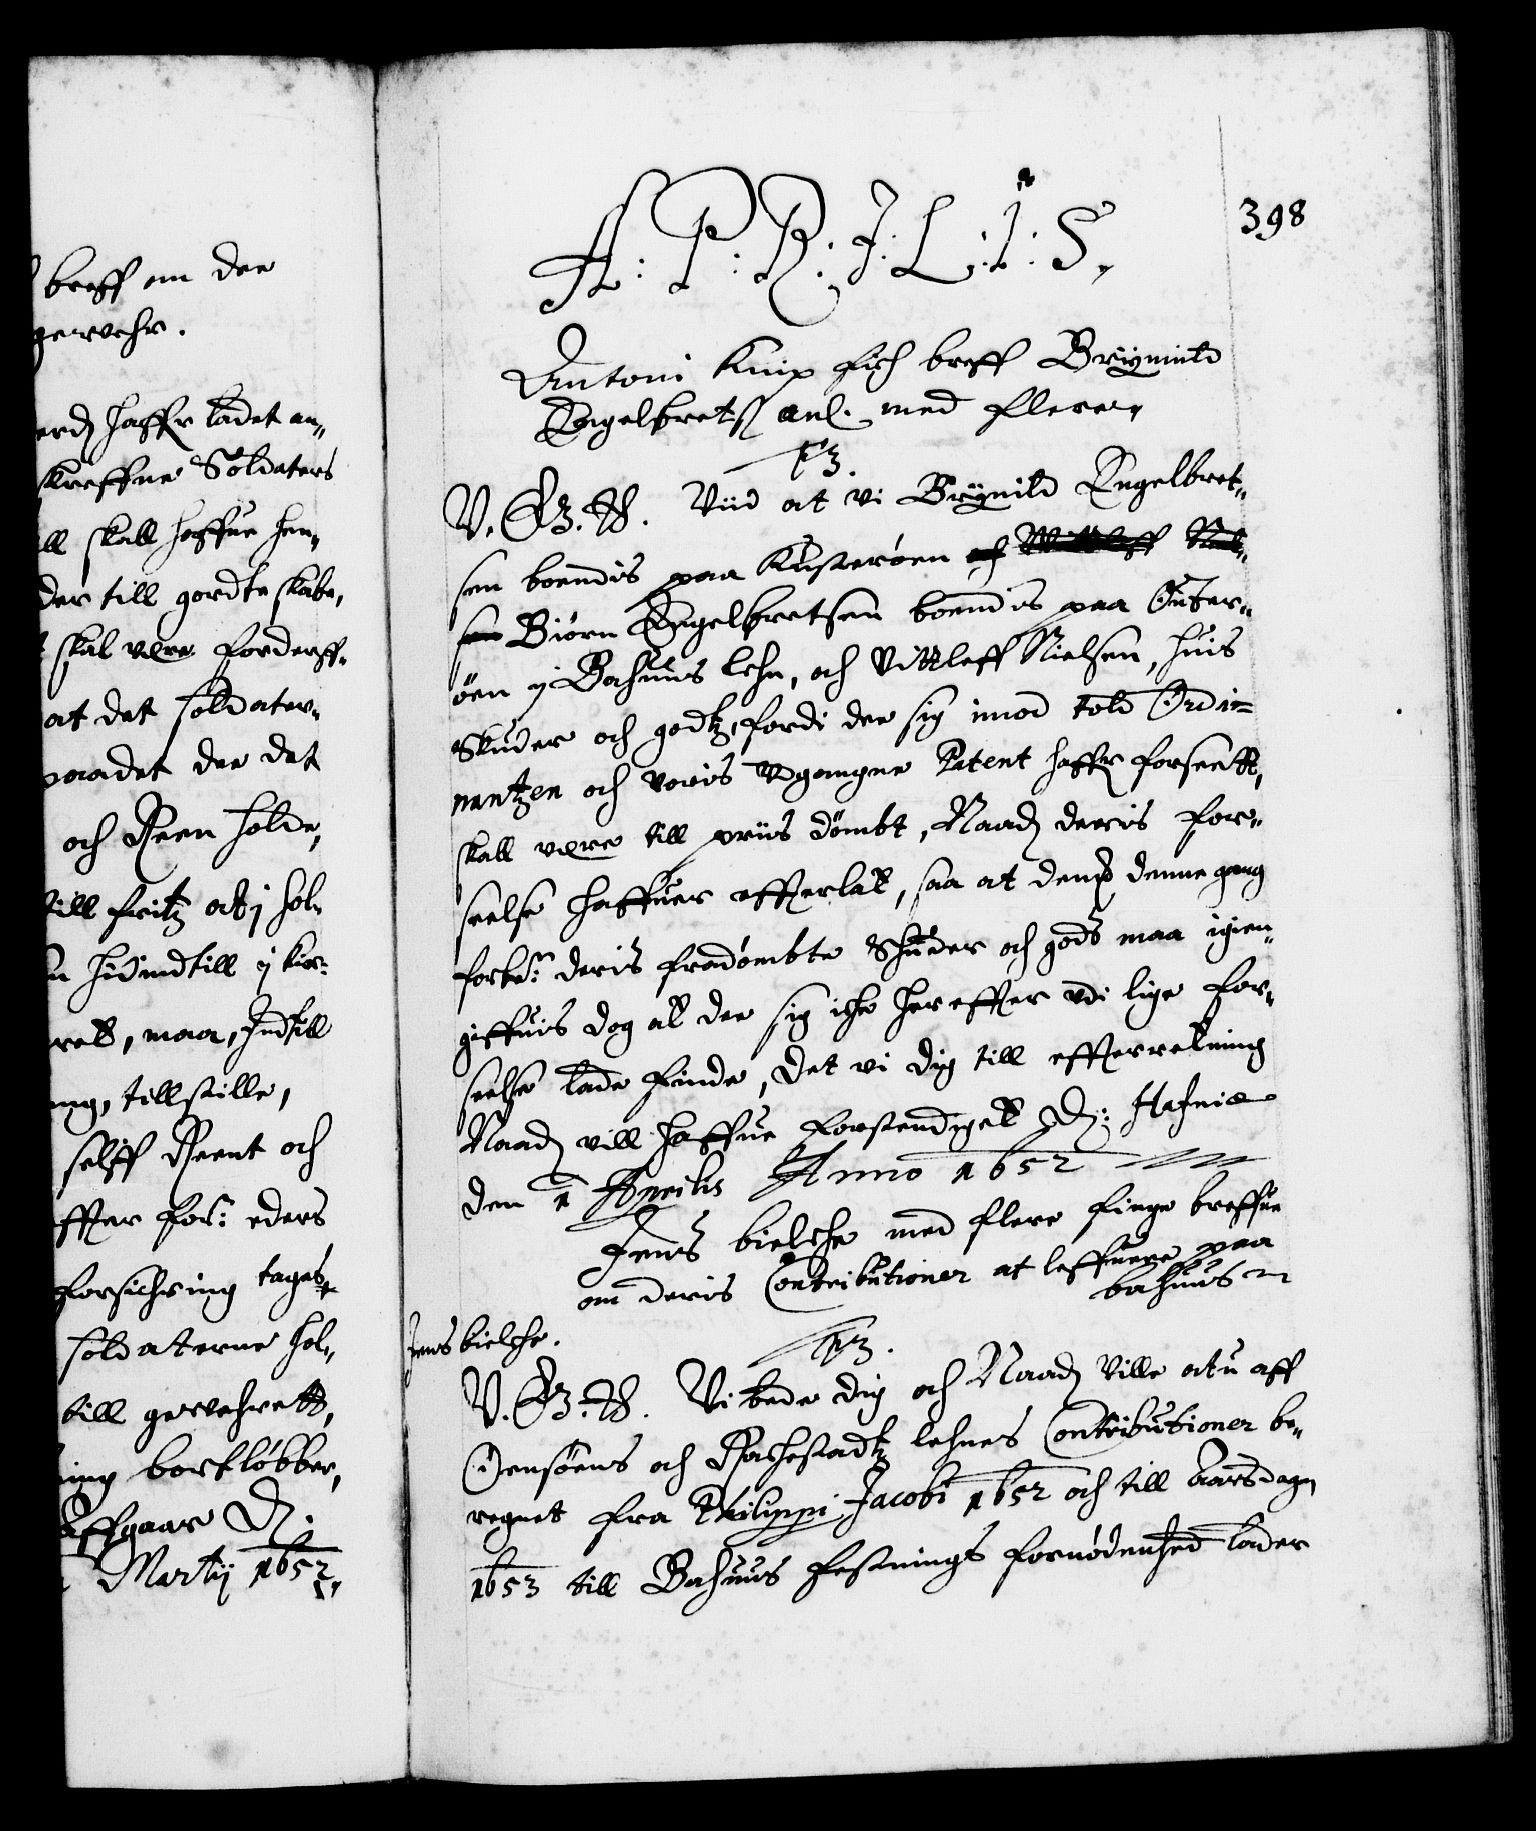 breff om der
gewehr.
haffr ladet an„
skreffne Soldaters
skall haffue hen„
der till giordte skabe,
skal være forderff„
at det soldater„
der det
och Reen holde,
till fritz at j hol„
hidindtill ij kier„
maa, Indtill
tillstille,
selff Reent och
effter for: eders
forsichring tages
soldaterne hol„
till gewehrett,
bortløbber,
Affgaar D.
Martij 1652
398
A: P: R: I: L: I: S„
Antoni Knip fich breff Brynnild
Engelbretß anl. med flere„
F3.
V. G. T. Viid at vi Brynild Engelbret„
sen boendis paa Kusterøen och Wittleff Niel„
sen Biørn Engelbretsen boendis paa Øuter„
øen ij Bahuus lehn, och Vittleff Nielsen, huis
Skuder och godtz, fordi der sig imod told Ordi„
nantzen och voris Vdgangne Patent haffr forseett,
skall være till priis dömbt, Naadt deris for„
seelse haffuer efferlatt, saa at demb denne gang
forbe: deris fradömbte Skuder och gods maa igien„
giffuis dog at der sig iche hereffter vdi lige for„
seelse lade finde, Det vi dig till effterretning
Naadt vill haffue forstendiget D: Hafniæ
den 1 Aprilis Anno 1652
Jens bielche med flere finge breffue
om deris Contributioner at leffuere paa
bahuus
Jens bielche.
F3.
V. G. T. Vi bede dig och Naadt Ville atu aff
Jensöens och Rachestadtz lehnes Contributioner be„
regnet fra Philippi Jacobi 1652 och till Aarsdagen
1653 till Bahuus festnings fornødenhed lader